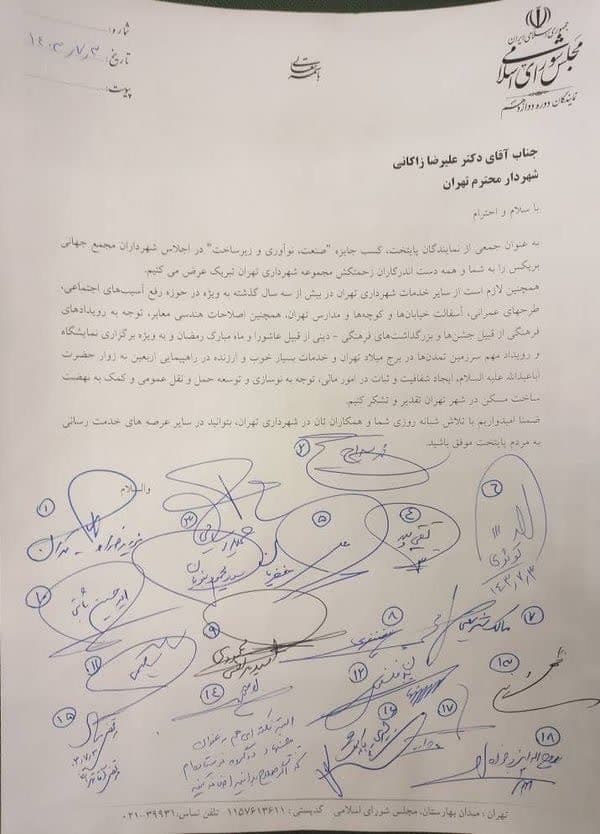 جمهوری اسلامی ایران
مجلس شورای اسلامی
نمایندگان دوره دوازدهم
باسمه تعالی
شماره:
تاریخ: ۱۴۰۳/۷/۳
پیوست:
جناب آقای دکتر علیرضا زاکانی
شهردار محترم تهران
با سلام و احترام
به عنوان جمعی از نمایندگان پایتخت، کسب جایزه "صنعت، نوآوری و زیرساخت" در اجلاس شهرداران مجمع جهانی
بریکس را به شما و همه دست اندرکاران زحمتکش مجموعه شهرداری تهران تبریک عرض می کنیم.
همچنین لازم است از سایر خدمات شهرداری تهران در بیش از سه سال گذشته به ویژه در حوزه رفع آسیب‌های اجتماعی،
طرحهای عمرانی، آسفالت خیابان‌ها و کوچه‌ها و مدارس تهران، همچنین اصلاحات هندسی معابر، توجه به رویدادهای
فرهنگی از قبیل جشن‌ها و بزرگداشت‌های فرهنگی - دینی از قبیل عاشورا و ماه مبارک رمضان و به ویژه برگزاری نمایشگاه
و رویداد مهم سرزمین تمدن‌ها در برج میلاد تهران و خدمات بسیار خوب و ارزنده در راهپیمایی اربعین به زوار حضرت
اباعبدالله علیه السلام، ایجاد شفافیت و ثبات در امور مالی، توجه به نوسازی و توسعه حمل و نقل عمومی و کمک به نهضت
ساخت مسکن در شهر تهران تقدیر و تشکر کنیم.
ضمنا امیدواریم با تلاش شبانه روزی شما و همکاران تان در شهرداری تهران، بتوانید در سایر عرصه های خدمت رسانی
به مردم پایتخت موفق باشید.
والسلام
۱
۲
۳
۴
۵
۶
کوثری
۱۴۰۳/۷/۳
۷
مالک شریعتی
۸
خضریان
۹
۱۰
امیرحسین ثابتی
۱۱
۱۲
۱۳
۱۴
۱۵
۱۶
۱۷
۱۸
البته نکته ای هم به عنوان
تهران: میدان بهارستان، مجلس شورای اسلامی کدپستی: ۱۱۵۷۶۱۳۶۱۱ تلفن تماس: ۳۹۹۳۱-۰۲۱